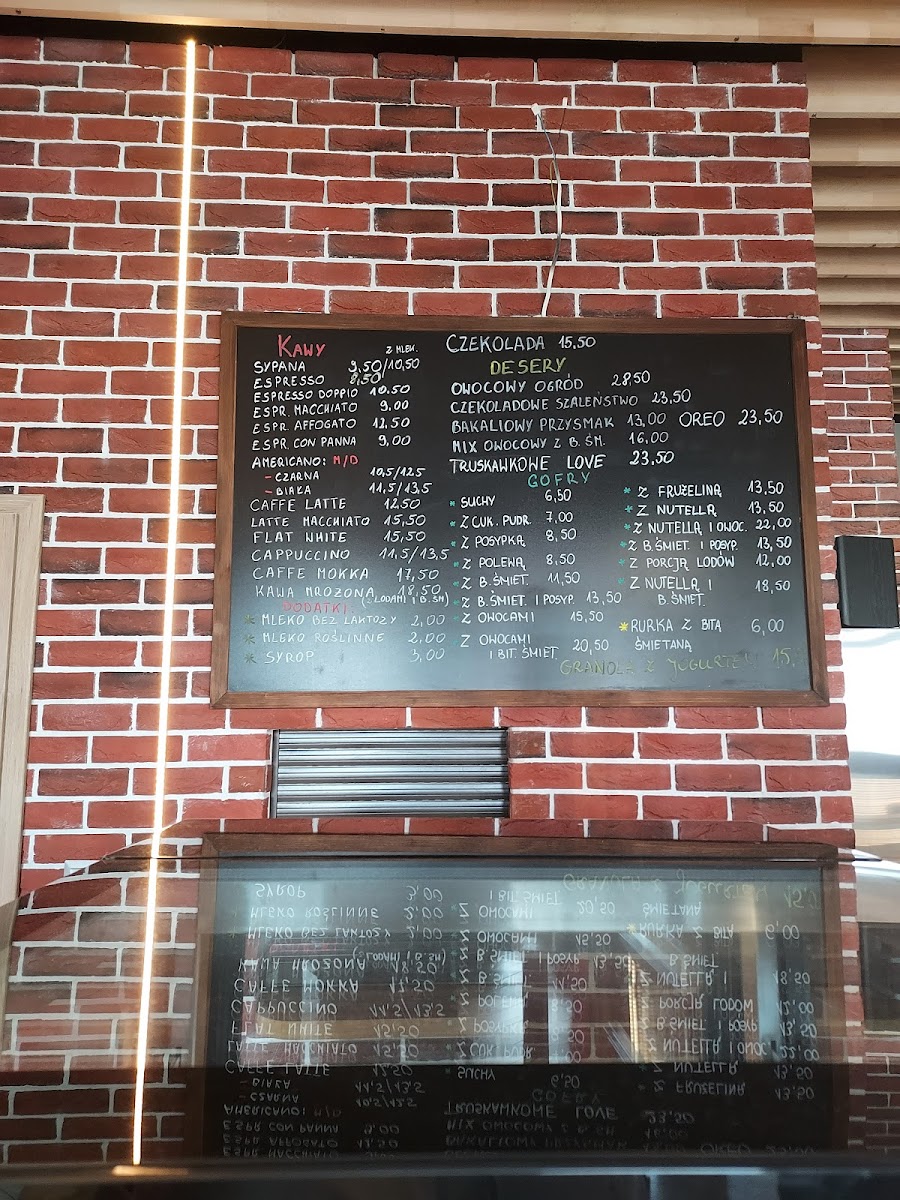 KAWY Z MLEK.
SYPANA 9,50/10,50
ESPRESSO 8,50
ESPRESSO DOPPIO 10.50
ESPR. MACCHIATO 9.00
ESPR. AFFOGATO 12,50
ESPR CON PANNA 9,00
AMERICANO: M/D
- CZARNA 10,5/12,5
- BIAŁA 11,5/13,5
CAFFE LATTE 12,50
LATTE MACCHIATO 15,50
FLAT WHITE 15,50
CAPPUCCINO 11,5/13,5
CAFFE MOKKA 17,50
KAWA MROŻONA 18,50
(Z LODAMI I B.ŚM)
DODATKI:
* MLEKO BEZ LAKTOZY 2,00
* MLEKO ROŚLINNE 2,00
* SYROP 3,00
CZEKOLADA 15,50
DESERY
OWOCOWY OGRÓD 28,50
CZEKOLADOWE SZALEŃSTWO 23,50
BAKALIOWY PRZYSMAK 13,00 OREO 23,50
MIX OWOCOWY Z B.ŚM. 16,00
TRUSKAWKOWE LOVE 23,50
GOFRY
* SUCHY 6,50
* Z CUK. PUDR. 7,00
* Z POSYPKĄ 8,50
* Z POLEWĄ 8,50
* Z B.ŚMIET. 11,50
* Z B.ŚMIET. I POSYP. 13,50
* Z OWOCAMI 15,50
Z OWOCAMI
I BIT. ŚMIET. 20,50
* Z FRUŻELINĄ 13,50
* Z NUTELLĄ 13,50
* Z NUTELLĄ I OWOC. 22,00
* Z B.ŚMIET. I POSYP. 13,50
* Z PORCJĄ LODÓW 12,00
* Z NUTELLĄ I
B.ŚMIET. 18,50
* RURKA Z BITĄ
ŚMIETANĄ 6,00
GRANOLA Z JOGURTEM